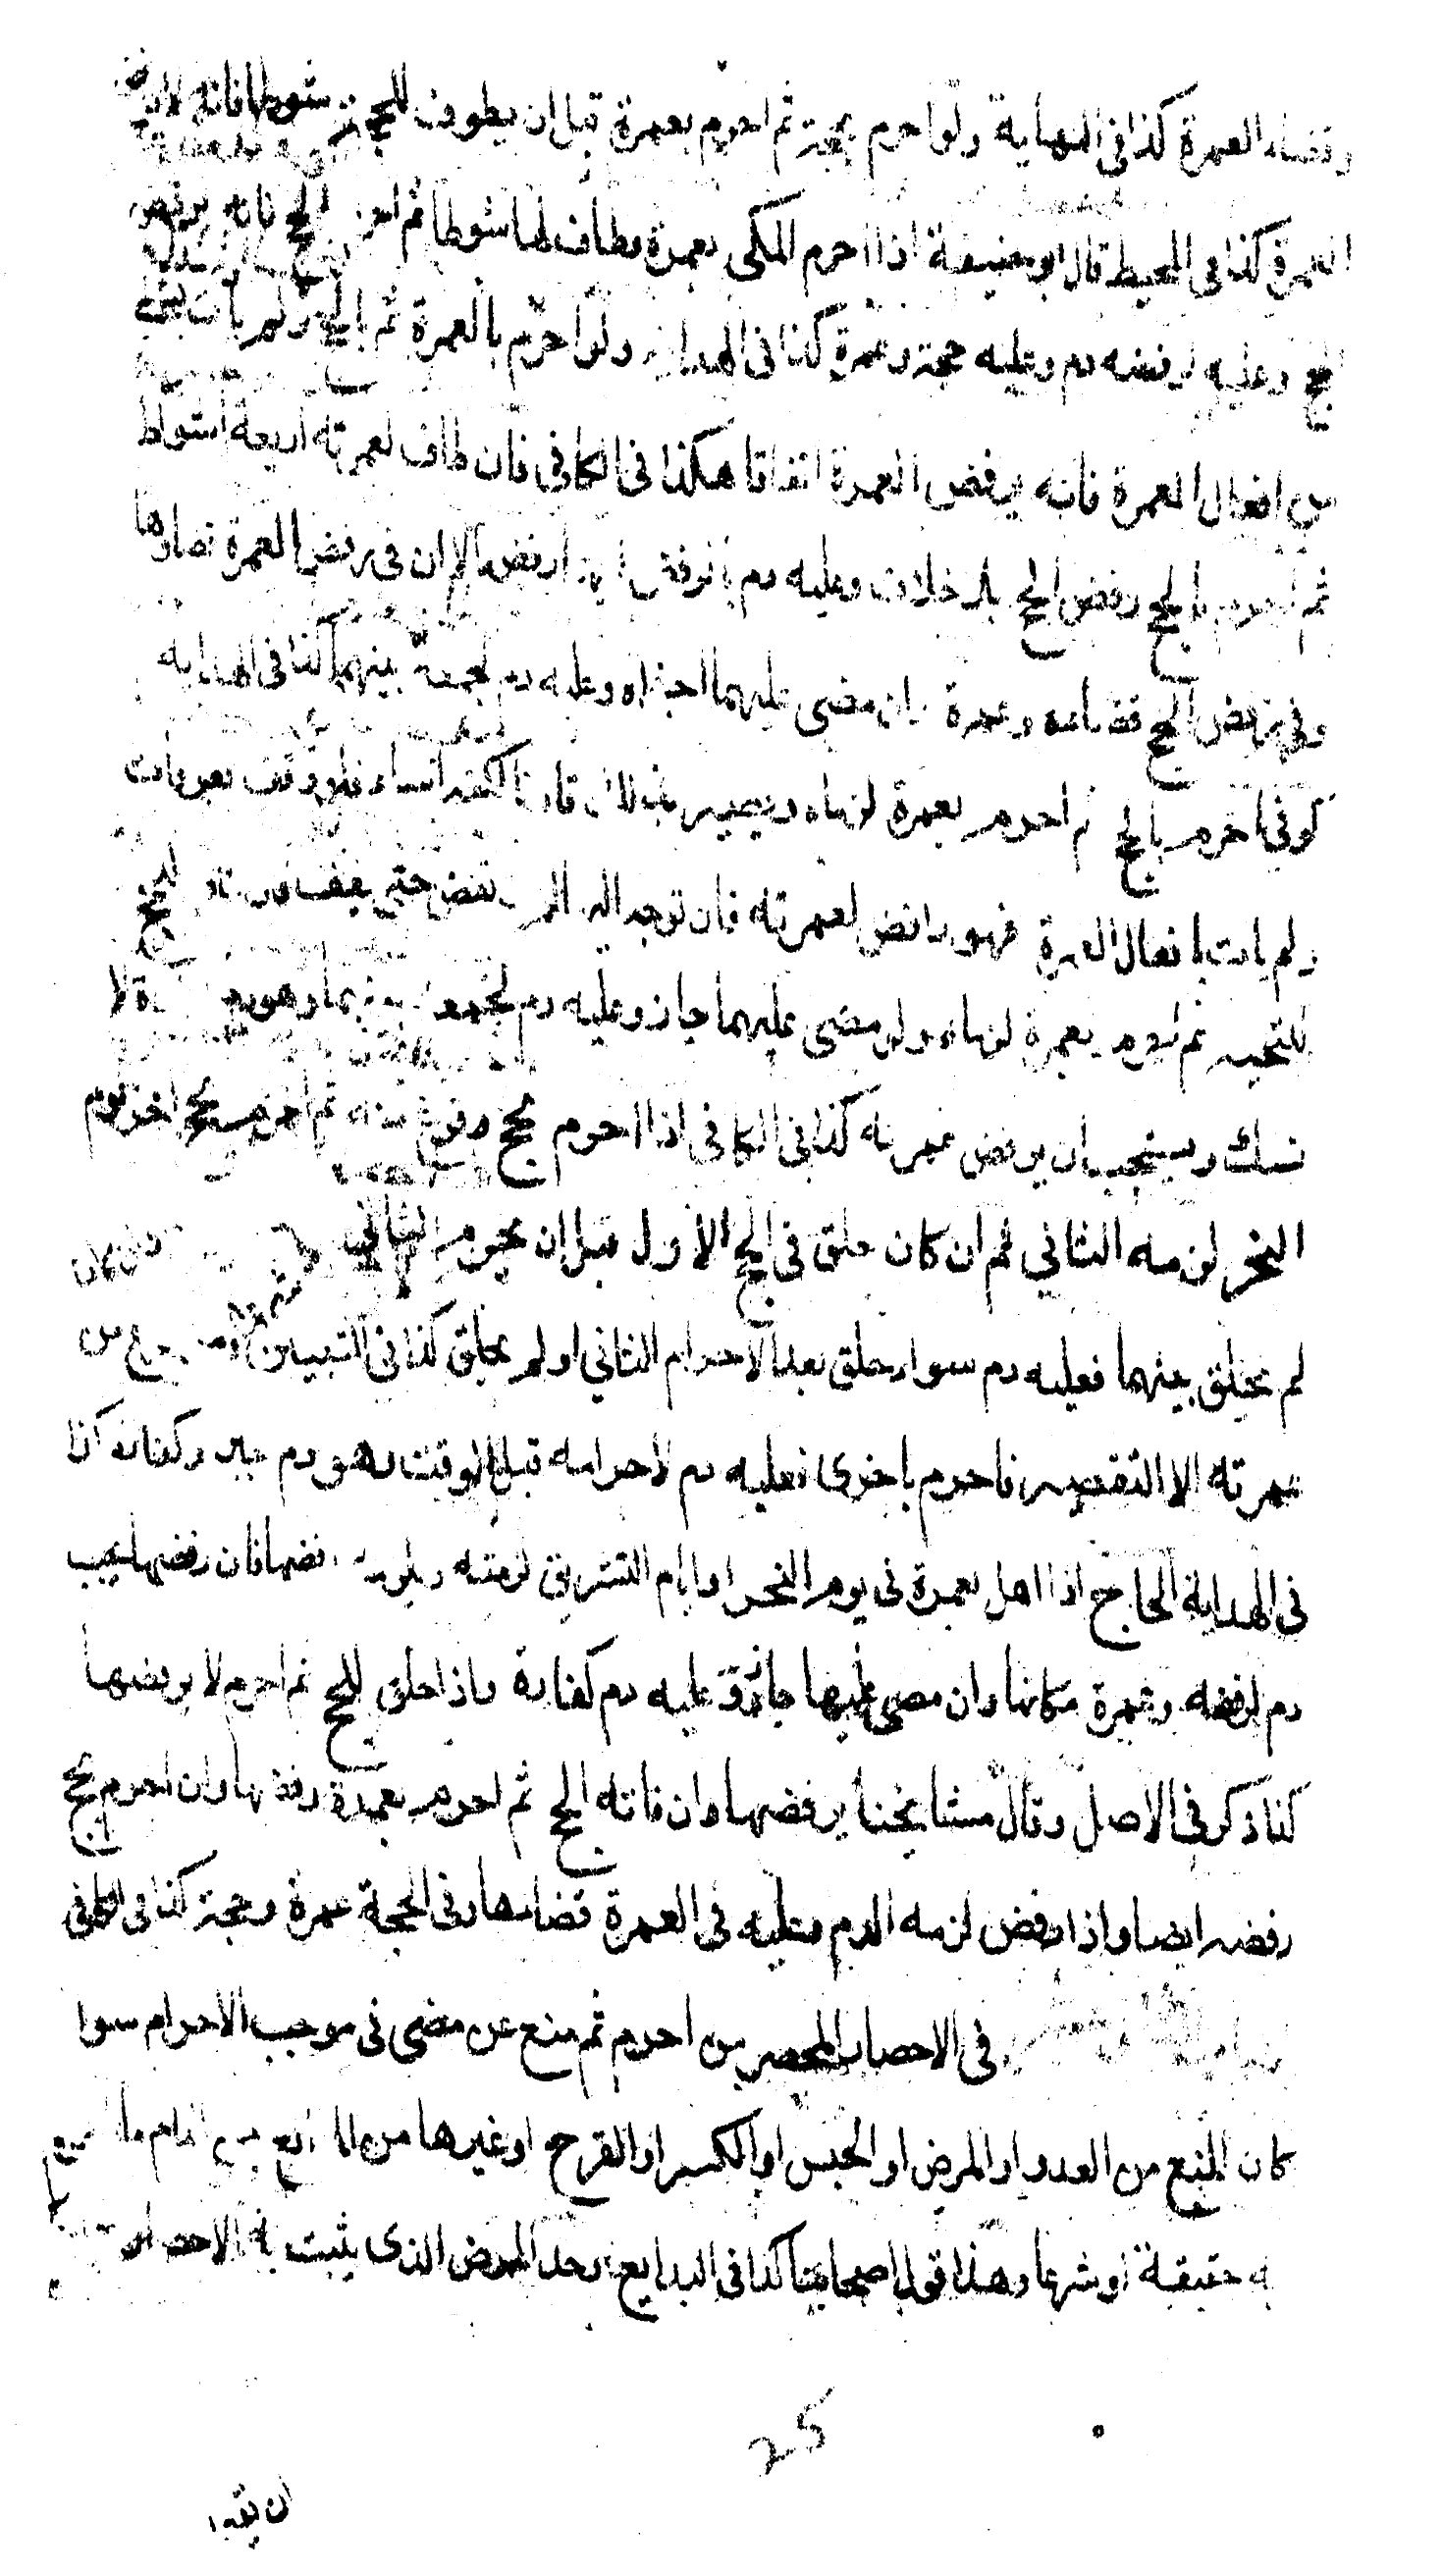 وقضاء العمرة كذا في النهاية ولو احرم بحجة ثم احرم بعمرة قبل ان يطوف للحج شوطا فانه لا
العمرة كذا في المحيط قال ابو حنيفة اذا احرم المكي بعمرة وطاف لها شوطا ثم احرم الحج فانه يرفض
الحج وعليه لرفضه دم وعليه حجة وعمرة كذا في الهداية ولو احرم بالعمرة ثم بالحج ولم يات بشي
من افعال العمرة فانه يرفض العمرة اتفاقا هكذا في الكافي فان طاف لعمرته اربعة اشواط
ثم احرم بالحج رفض الحج بلا خلاف وعليه دم بالرفض ايهما رفض الا ان في رفض العمرة قضاوها
وفي رفض الحج قضاءه وعمرة وان مضى عليهما اجزاه وعليه دم لجمعه بينهما كذا في الهداية
كوفي احرم بالحج ثم احرم بعمرة لزماه ويصير بذلك قارنا لكنه اساء فلو وقف بعرفات
ولم يات بافعال العمرة فهو رافض لعمرته فان توجه اليها لم يرتفض حتى يقف للحج
للتحية ثم احرم بعمرة لزماه ولو مضى عليهما جاز وعليه دم لجمعه بينهما وهو لا
نسك ويستحب ان يرفض عمرته كذا في الكافي اذا احرم بحج وفرغ منه ثم احرم بحج اخر يوم
النحر لزمه الثاني ثم ان كان حلق في الحج الاول قبل ان يحرم الثاني وان كان
لم يحلق بينهما فعليه دم سواء حلق بعد الاحرام الثاني او لم يحلق كذا في التبيين ومن فرغ من
عمرته الا التقصير فاحرم باخرى فعليه دم لاحرامه قبل الوقت وهو دم جبر وكفارة كذا
في الهداية الحاج اذا اهل بعمرة في يوم النحر او ايام التشريق لزمته ويلزمه رفضها فان رفضها يجب
دم لرفضه وعمرة مكانها وان مضى عليها جاز وعليه دم كفارة واذا حلق للحج ثم احرم لا يرفضها
كذا ذكر في الاصل وقال مشايخنا يرفضها وان فاته الحج ثم احرم بعمرة رفضها وان احرم بحج
رفضه ايضا واذا رفض لزمه الدم وعليه في العمرة قضاءها وفي الحجة عمرة وحجة كذا في الكافي
في الاحصار المحصر من احرم ثم منع عن مضي في موجب الاحرام سوا
كان المنع من العدو او المرض او الحبس او الكسر او القرح او غيرها من الموانع من اتمام ما احرم
به حقيقة او شرعا وهذا قول اصحابنا كذا في البدايع وحد المرض الذي يثبت به الاحصار
ان يقد